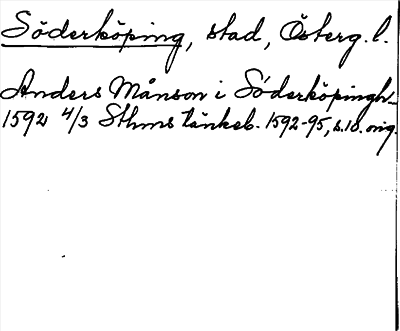 Söderköping, stad, Österg. l.
Anders Månson i Söderköpingh
1592 4/3 Sthms tänkeb. 1592-95, s. 10. orig.